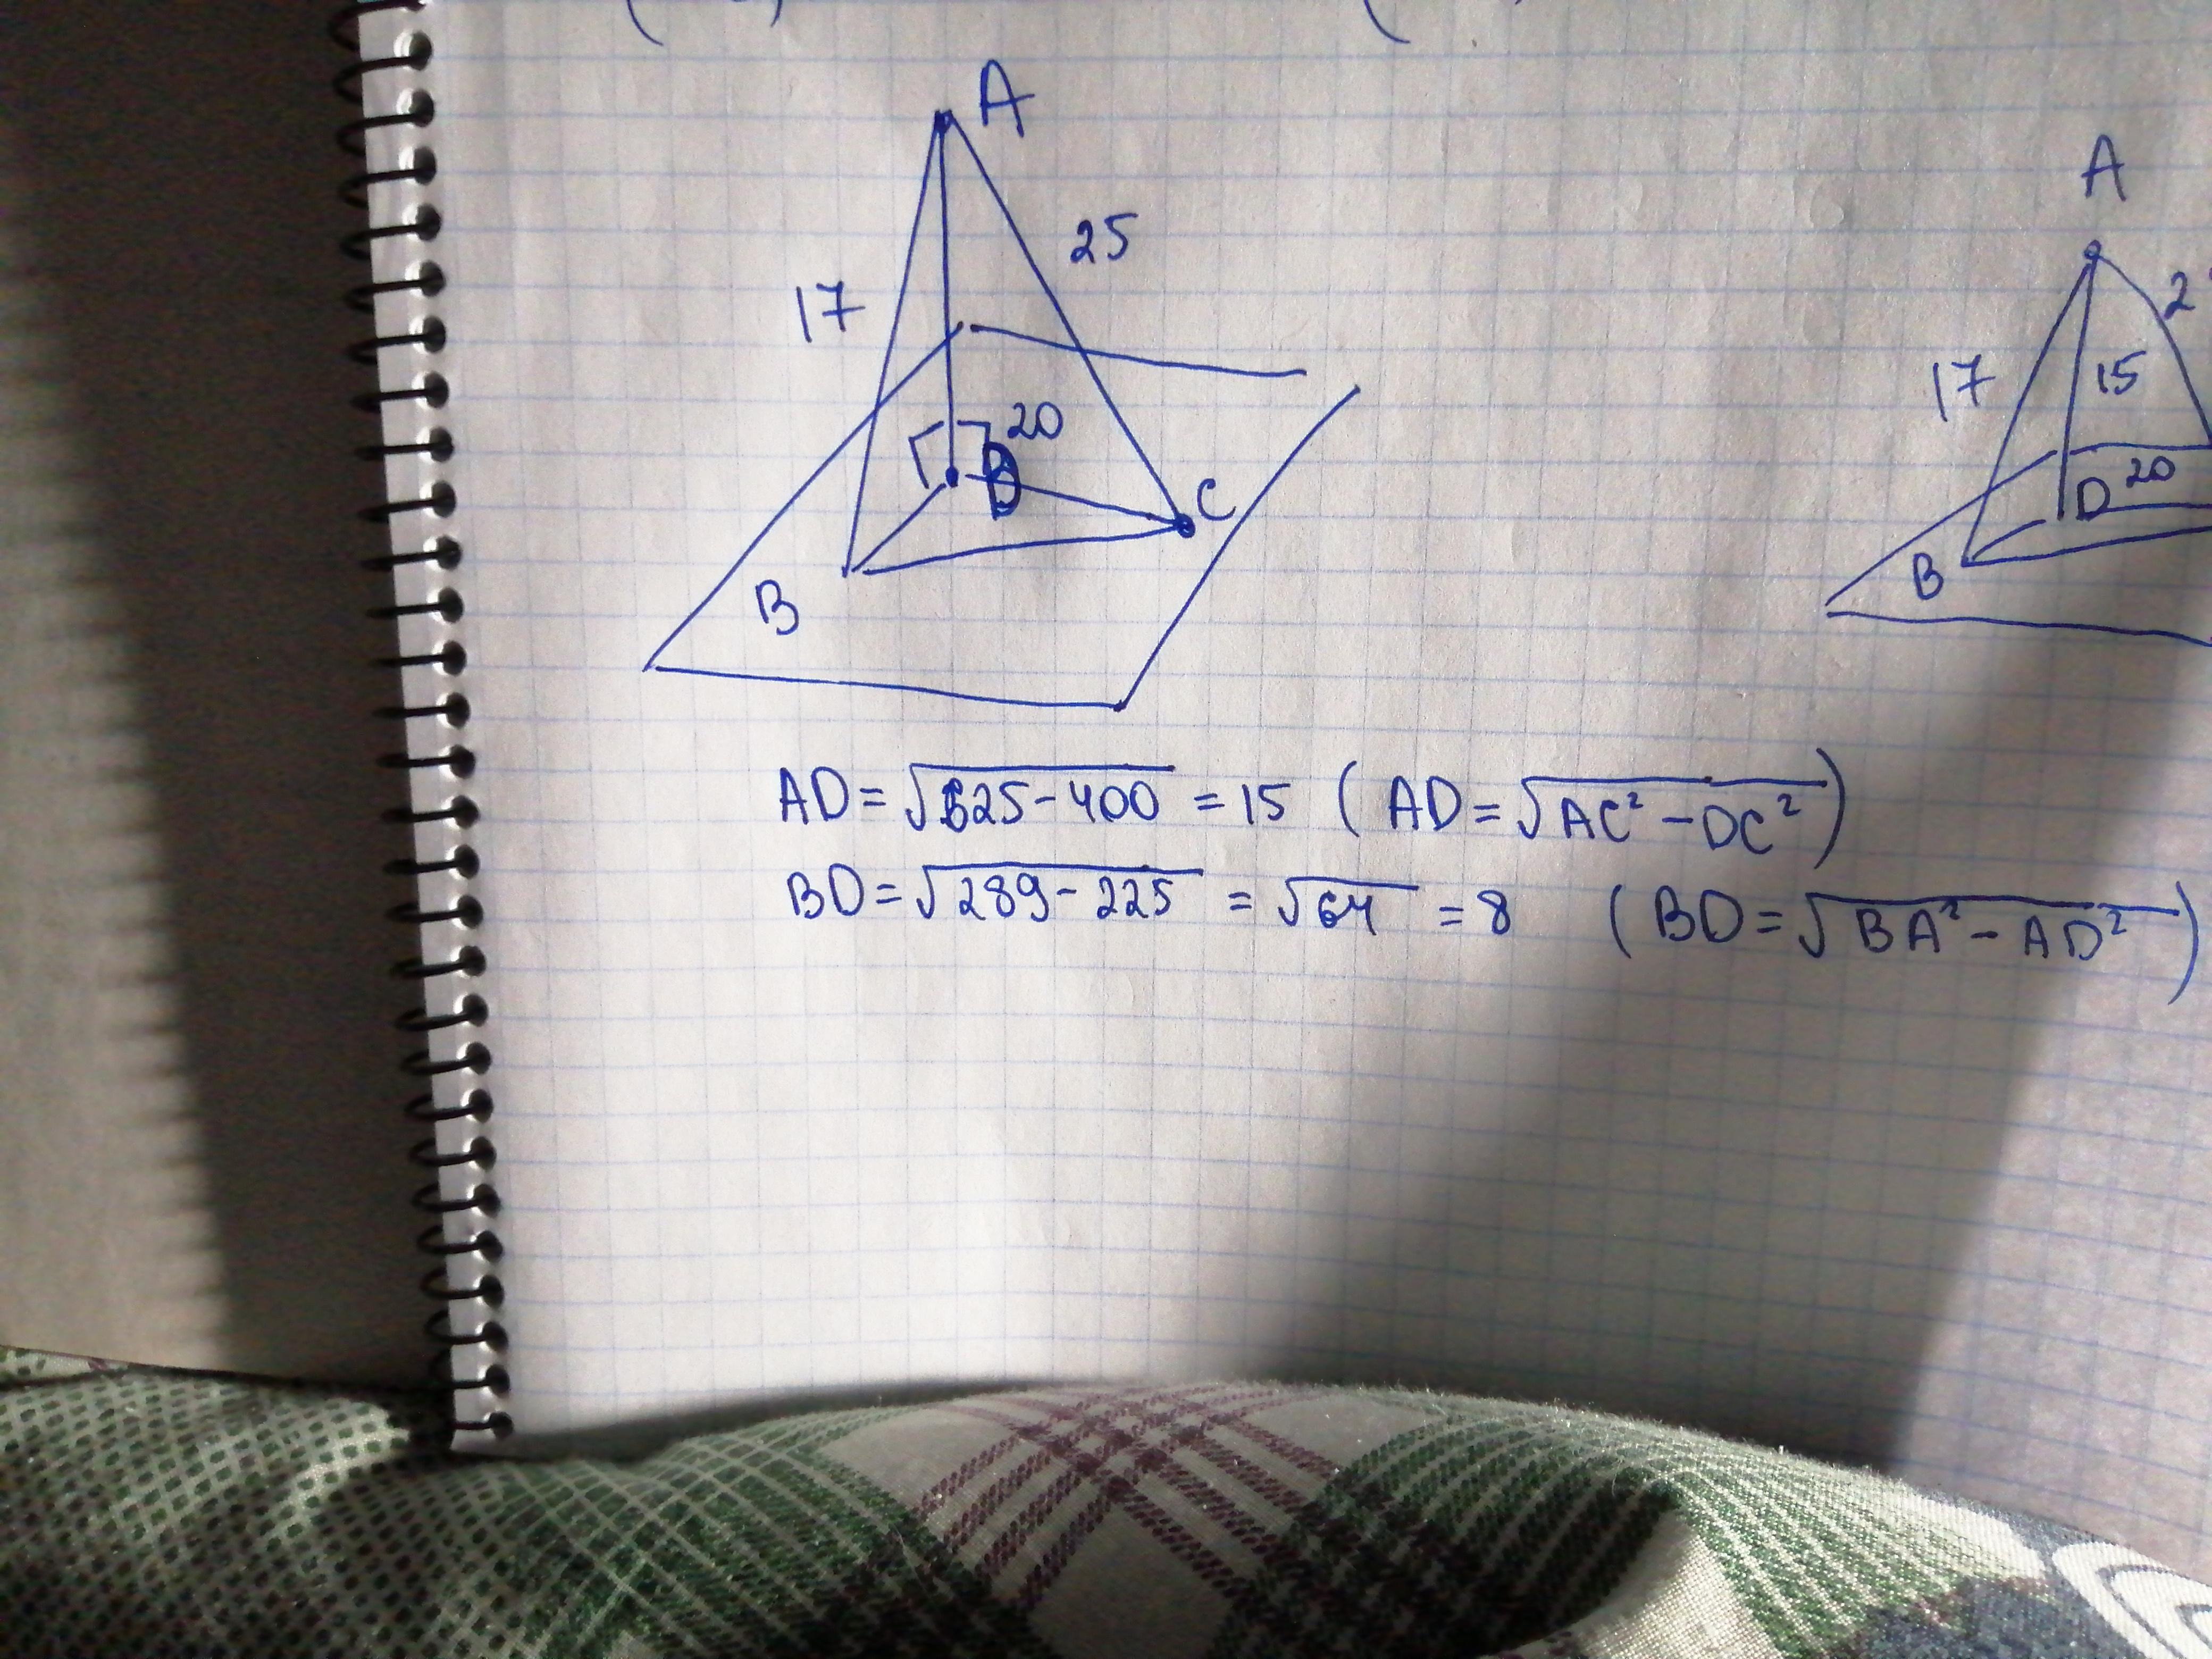 A
25
17
20
D
C
B
A
2
17
15
20
D
B
AD = √625-400 = 15 ( AD = √AC² - DC² )
BD = √289-225 = √64 = 8 ( BD = √BA² - AD² )